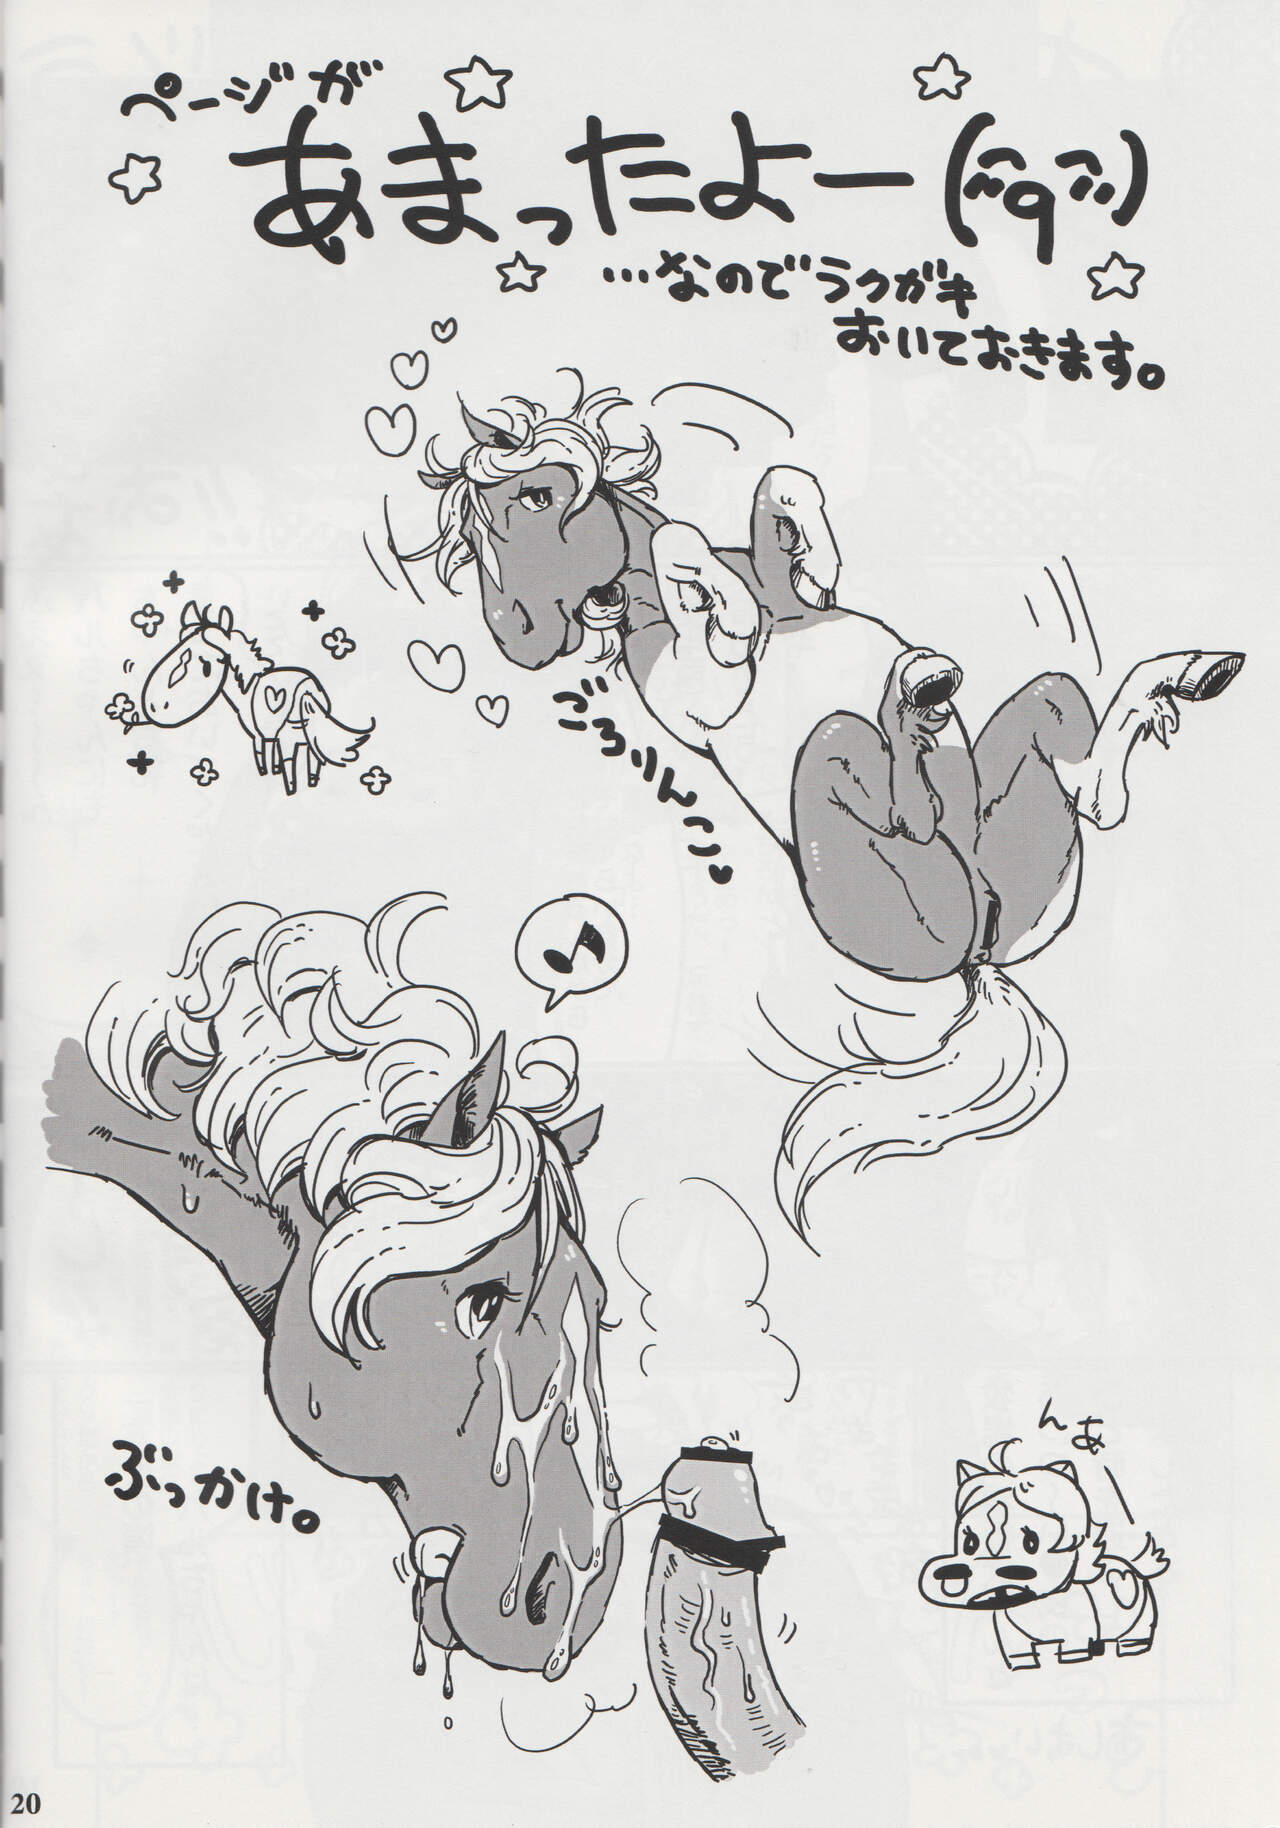 ページが
あまったよー(^q^)
…なのでラクガキ
おいておきます。
ごろりんこ♥
♪
ぶっかけ。
んあー
20